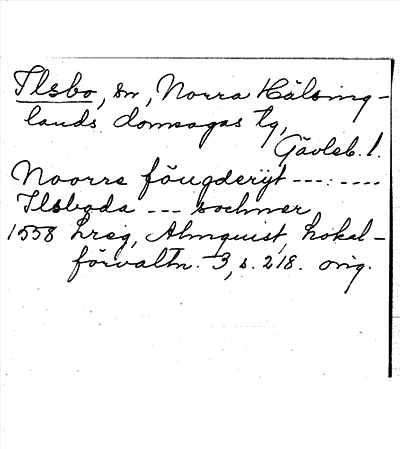 Ilsbo, sn, Norra Hälsing-
lands domsagas tg,
Gävleb. l.
Noorre föugderijt ---:----
Ilsboda --- sochner
1558 hreg, Almquist, Lokal-
förvaltn. 3, s. 218. orig.